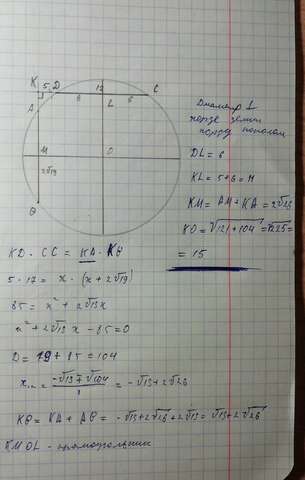 K 5 D 12 C
A 6 L 6
M O
2√19
B
Диаметр ⊥
хорде делит
хорду пополам
DL = 6
KL = 5+6 = 11
KM = AM + KA = 2√26
KO = √121+104 = √225 =
= 15
KD · CC = KA · KB
5 · 17 = x · (x + 2√19)
85 = x² + 2√19x
x² + 2√19x - 85 = 0
D = 19 + 85 = 104
x₁,₂ = -√19 ∓ √104 / 1 = -√19 + 2√26
KB = KA + AB = -√19 + 2√26 + 2√19 = √19 + 2√26
KMOL - прямоугольник